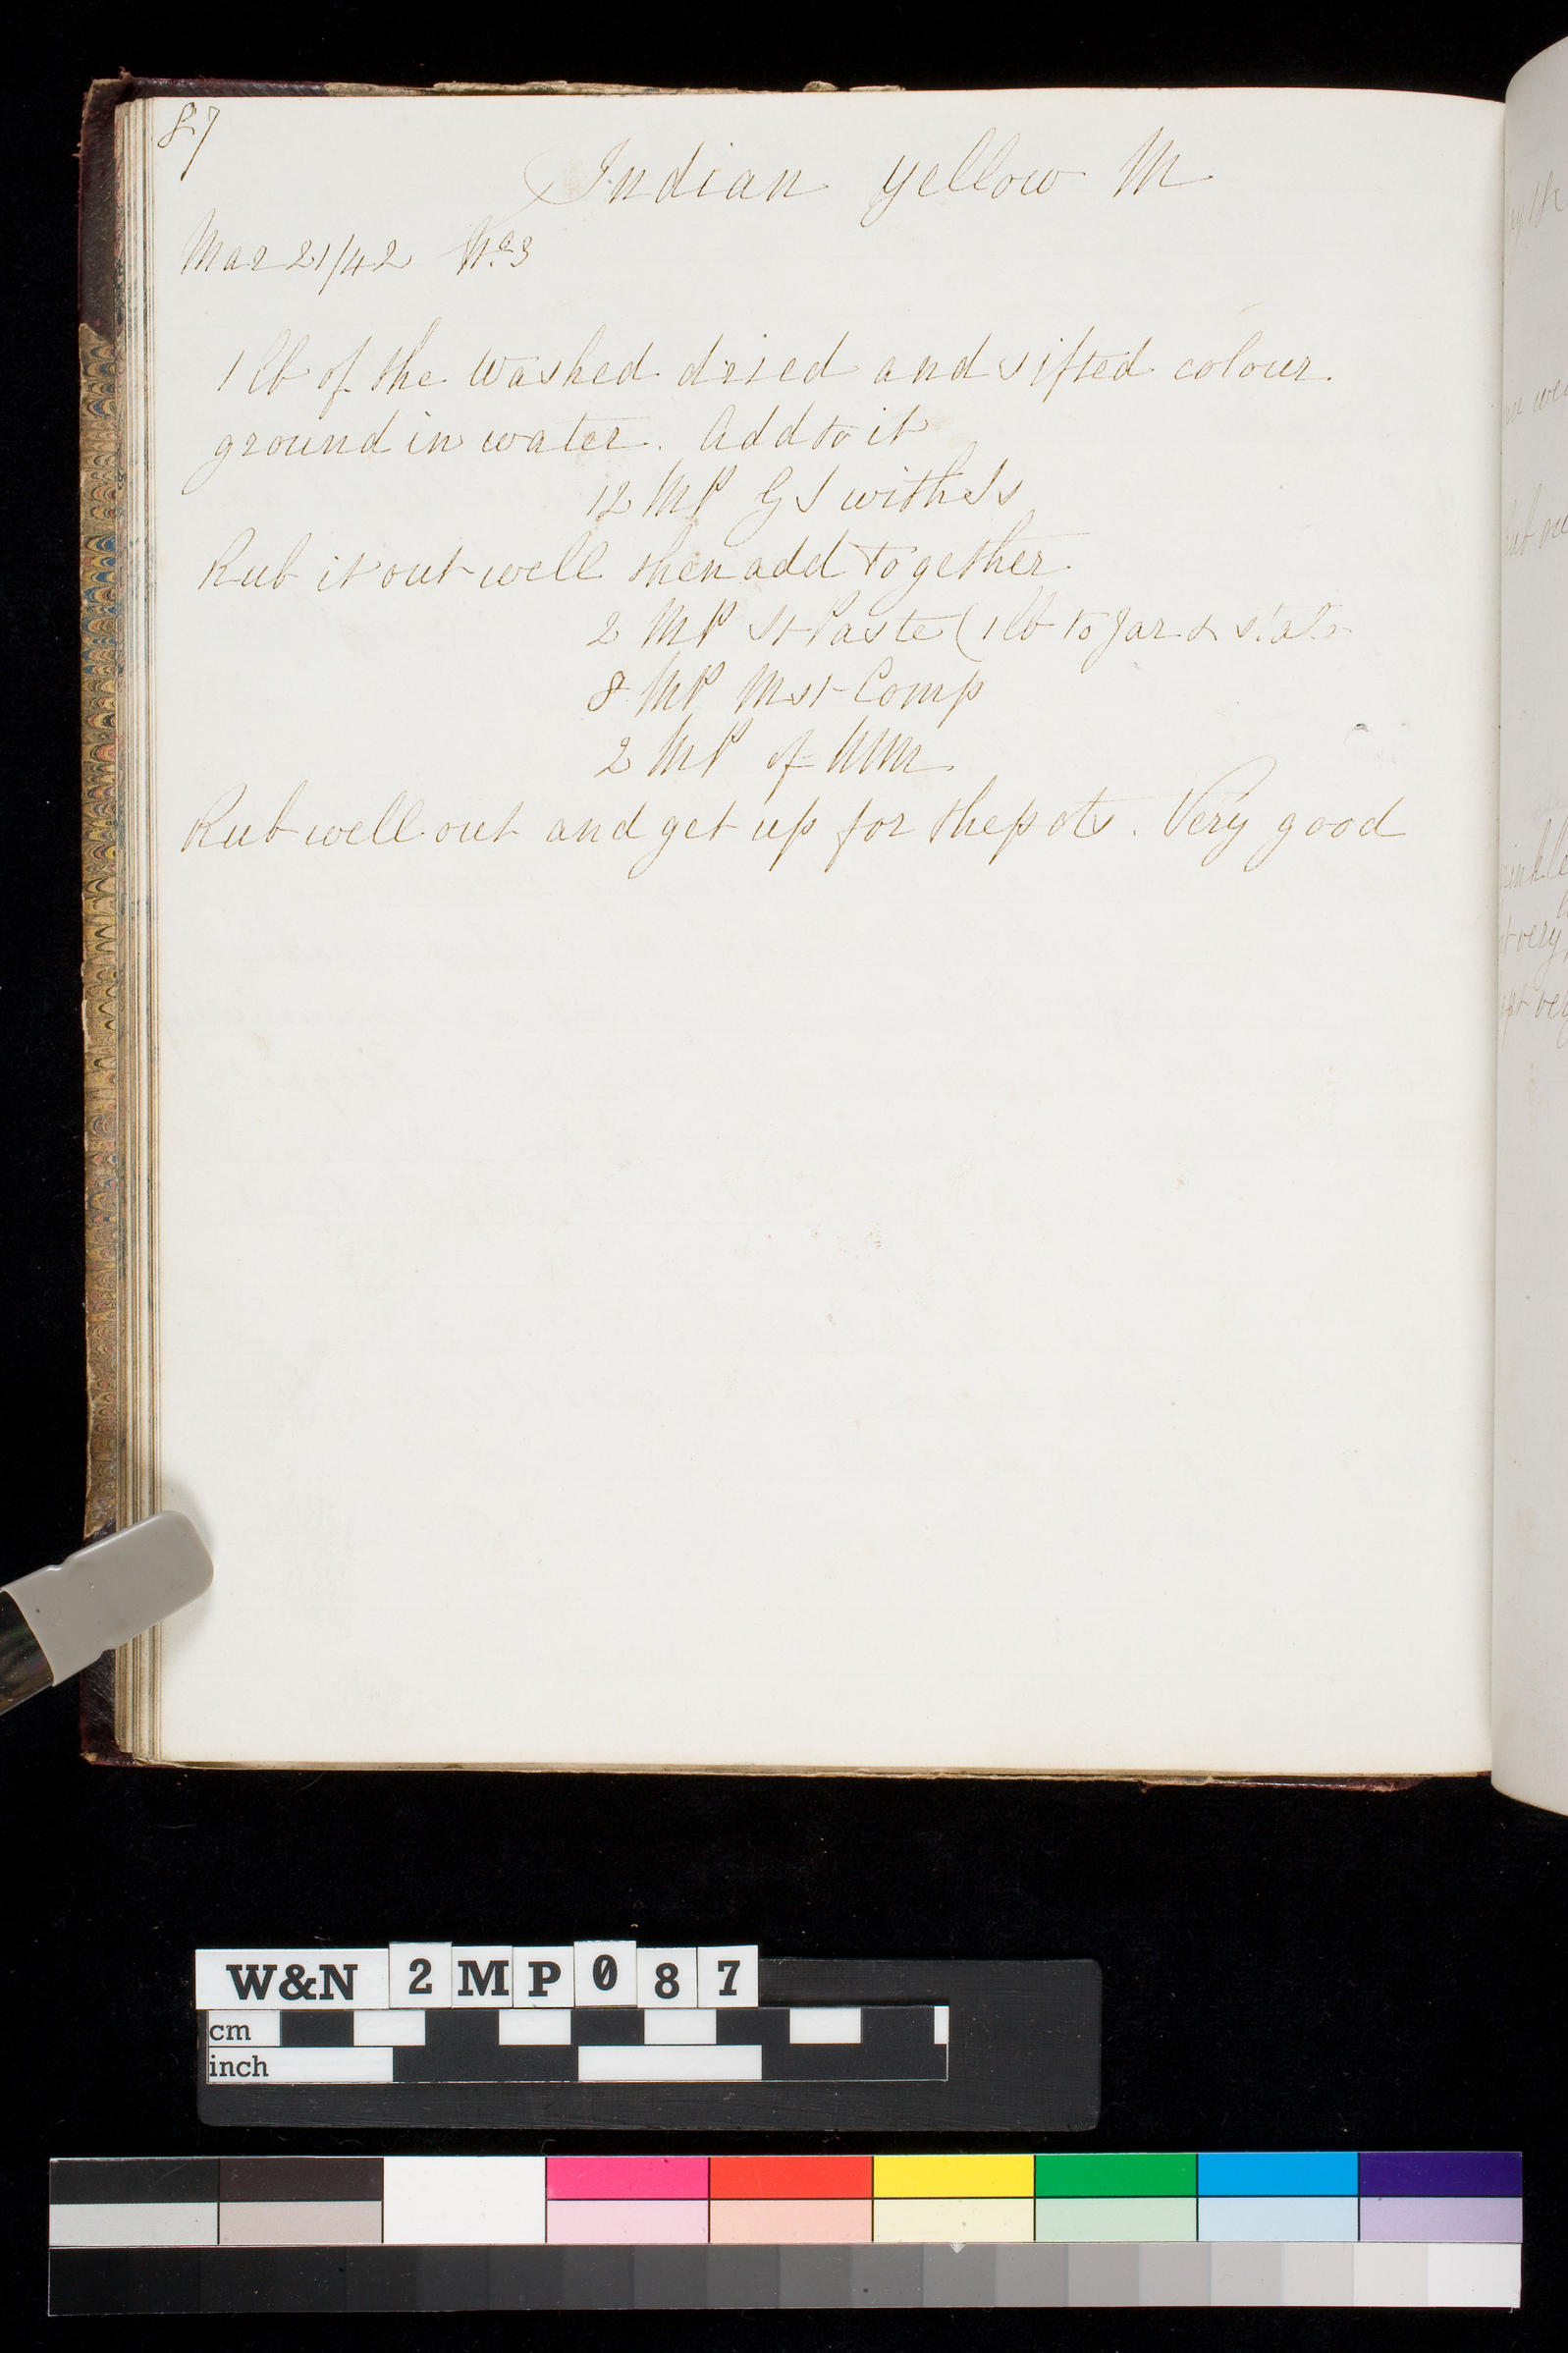 87
Indian yellow M
Mar 21/42 No 3
1 lb of the Washed dried and sifted colour.
ground in water. Add to it
12 MP GS with Is
Rub it out well then add together
2 MP St Paste (1 lb to Jar &
8 MP Mst Comp
2 MP of
Rub well out and get up for the pots. Very good
W&N 2MP087
cm
inch